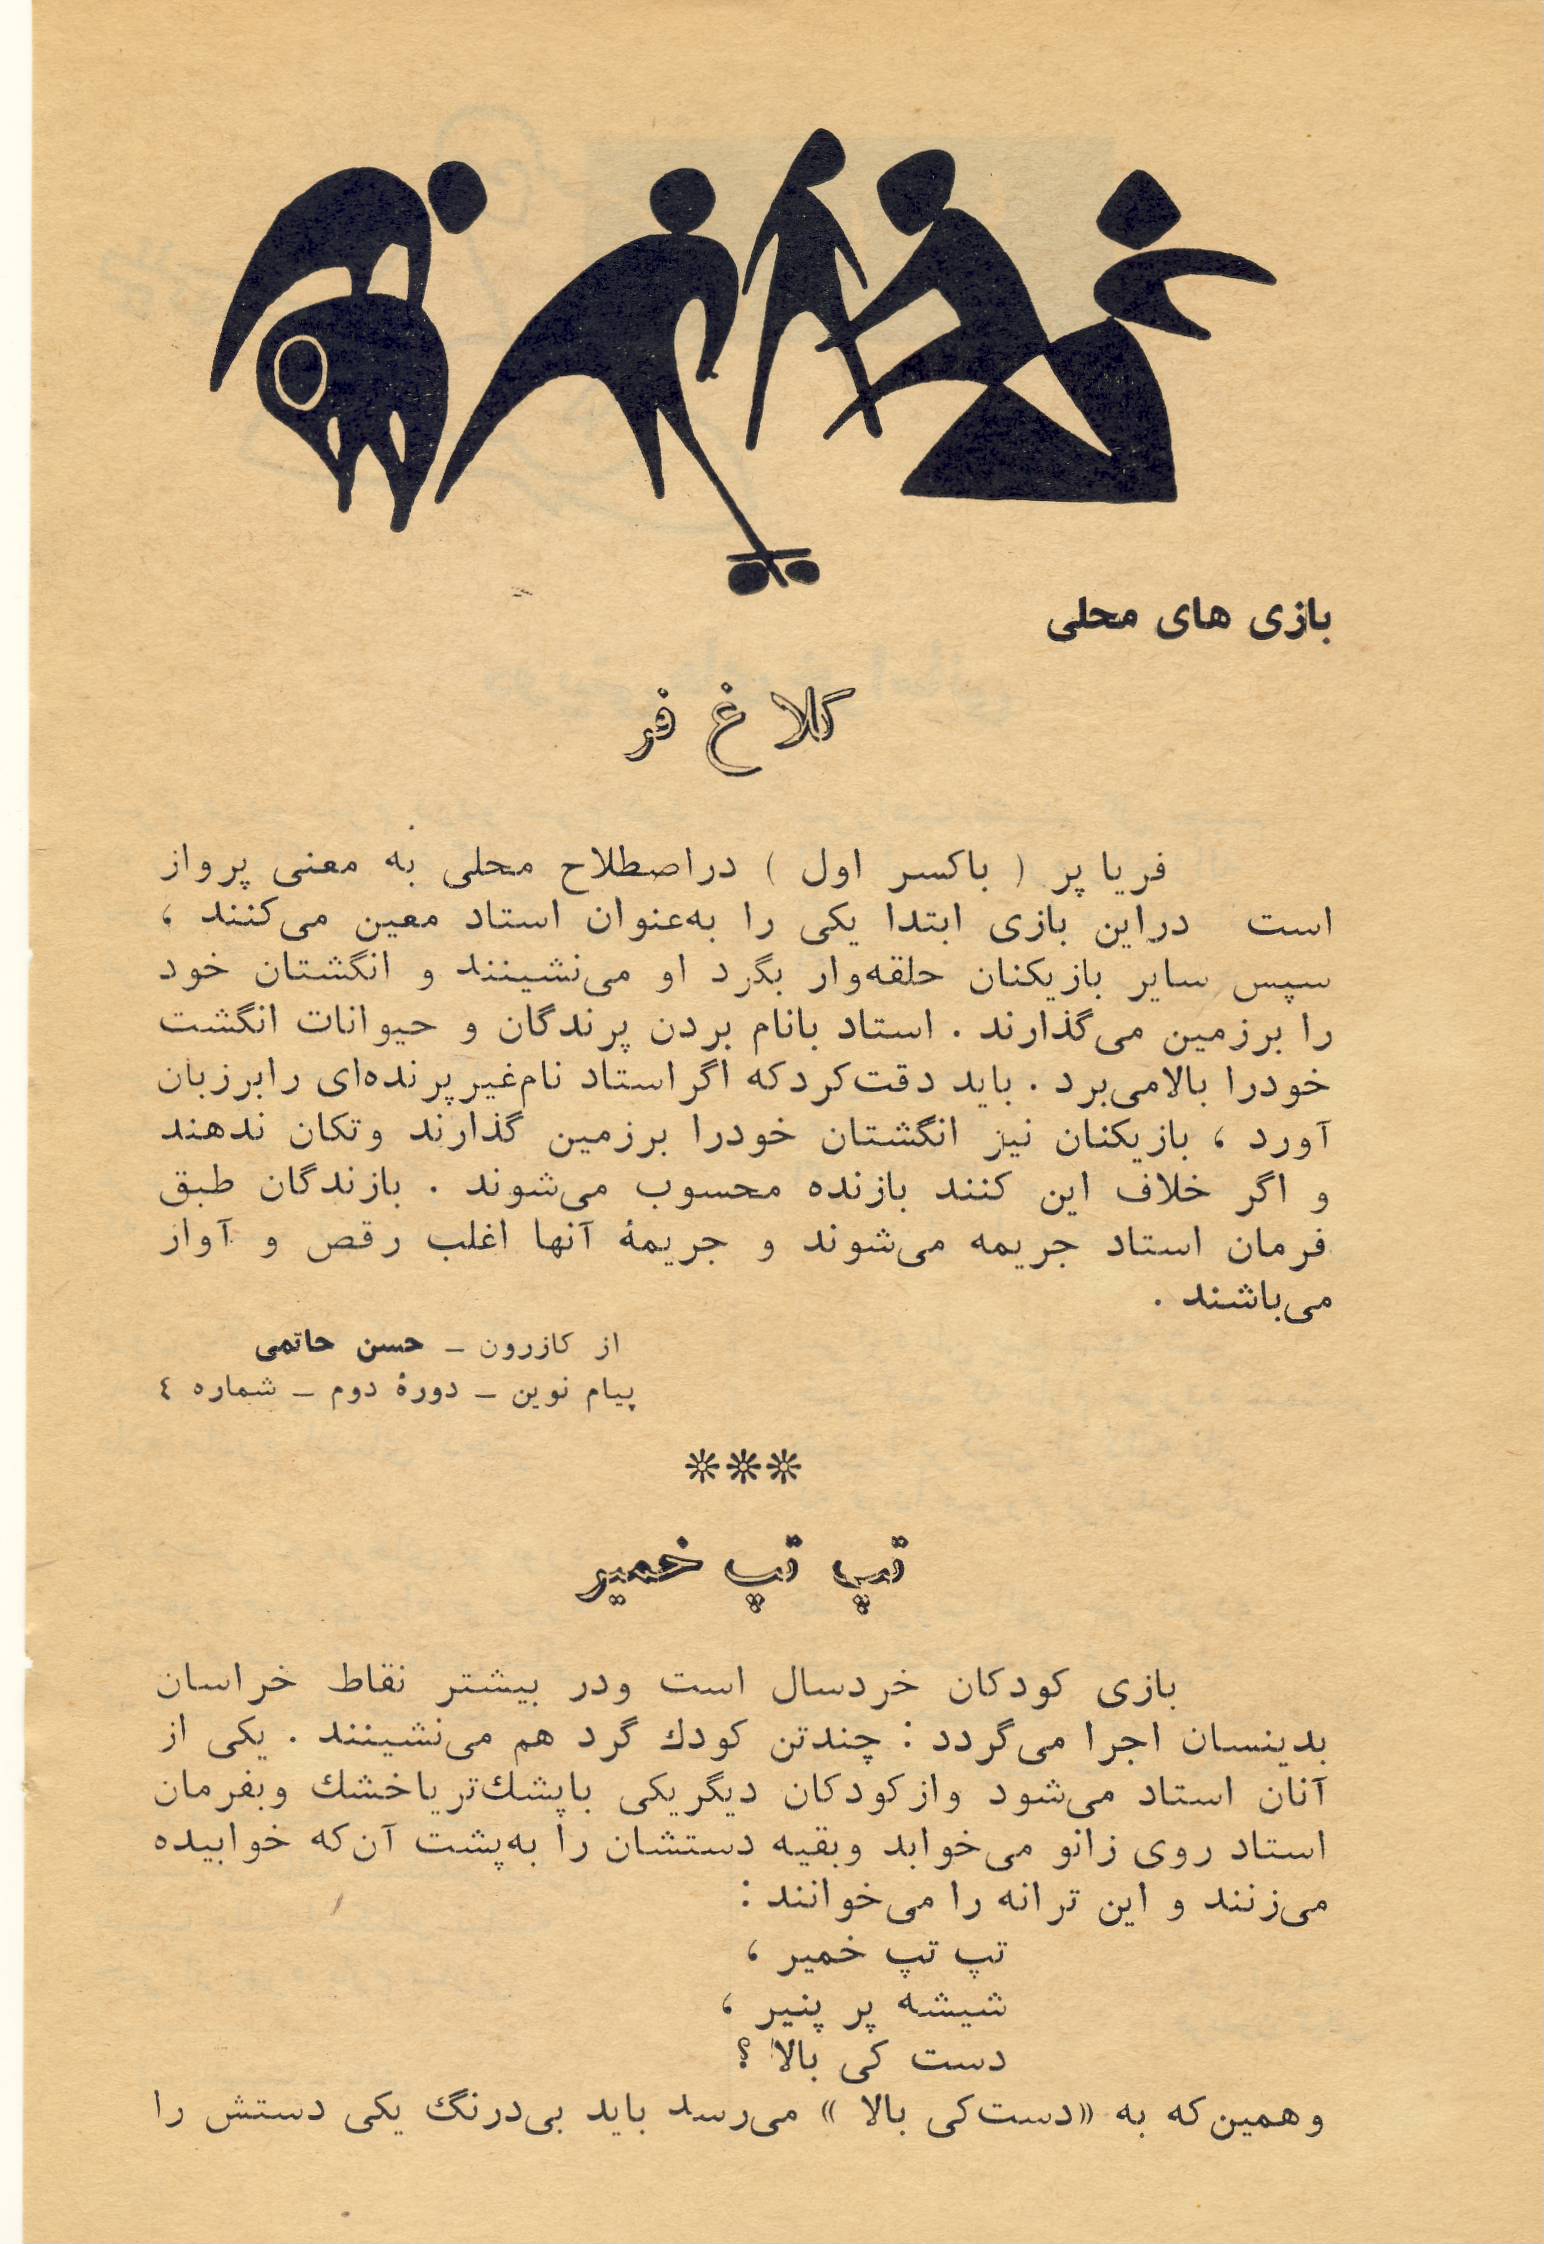 بازی های محلی
کلاغ فر
فریا پر ( باکسر اول ) دراصطلاح محلی به معنی پرواز
است دراین بازی ابتدا یکی را به‌عنوان استاد معین می‌کنند ،
سپس سایر بازیکنان حلقه‌وار بگرد او می‌نشینند و انگشتان خود
را برزمین می‌گذارند . استاد بانام بردن پرندگان و حیوانات انگشت
خودرا بالامی‌برد . باید دقت‌کردکه اگراستاد نام‌غیرپرنده‌ای رابرزبان
آورد ، بازیکنان نیز انگشتان خودرا برزمین گذارند وتکان ندهند
و اگر خلاف این کنند بازنده محسوب می‌شوند . بازندگان طبق
فرمان استاد جریمه می‌شوند و جریمهٔ آنها اغلب رقص و آواز
می‌باشند .
از کازرون ـ حسن حاتمی
پیام نوین ـ دورهٔ دوم ـ شماره ٤
***
تپ تپ خمیر
بازی کودکان خردسال است ودر بیشتر نقاط خراسان
بدینسان اجرا می‌گردد : چندتن کودك گرد هم می‌نشینند . یکی از
آنان استاد می‌شود وازکودکان دیگریکی باپشك‌تریاخشك وبفرمان
استاد روی زانو می‌خوابد وبقیه دستشان را به‌پشت آن‌که خوابیده
می‌زنند و این ترانه را می‌خوانند :
تپ تپ خمیر ،
شیشه پر پنیر ،
دست کی بالا ؟
وهمین‌که به «دست‌کی بالا » می‌رسد باید بی‌درنگ یکی دستش را